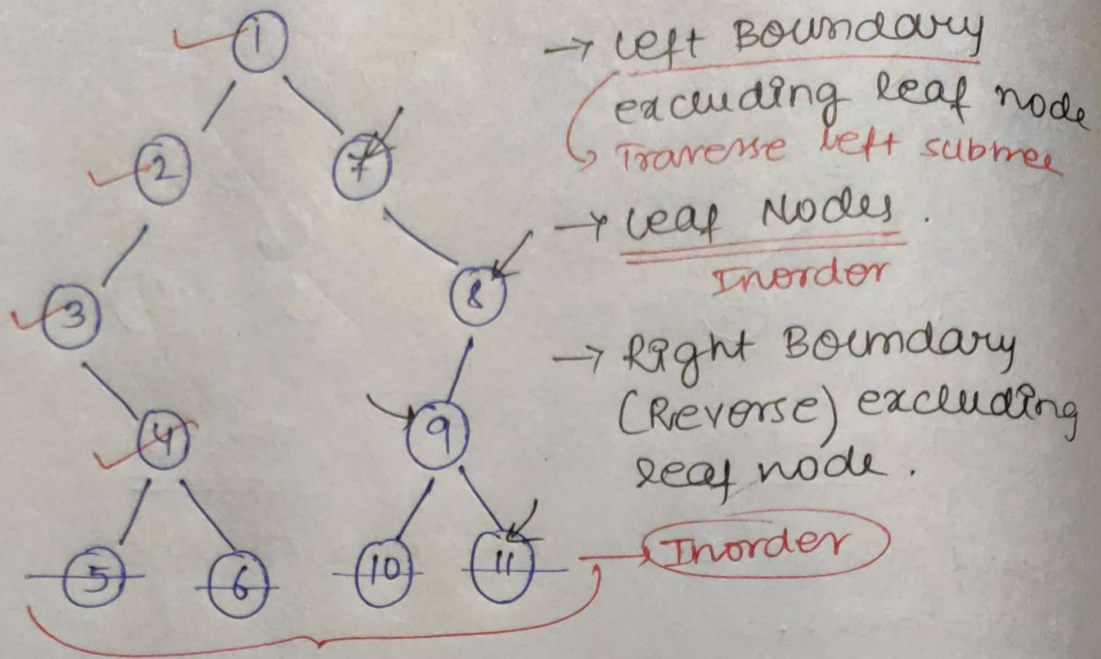 1
→ Left Boundary
excluding leaf node
Traverse left subtree
2
7
→ Leaf Nodes.
Inorder
3
8
→ Right Boundary
(Reverse) excluding
leaf node.
4
9
5
6
10
11
Inorder